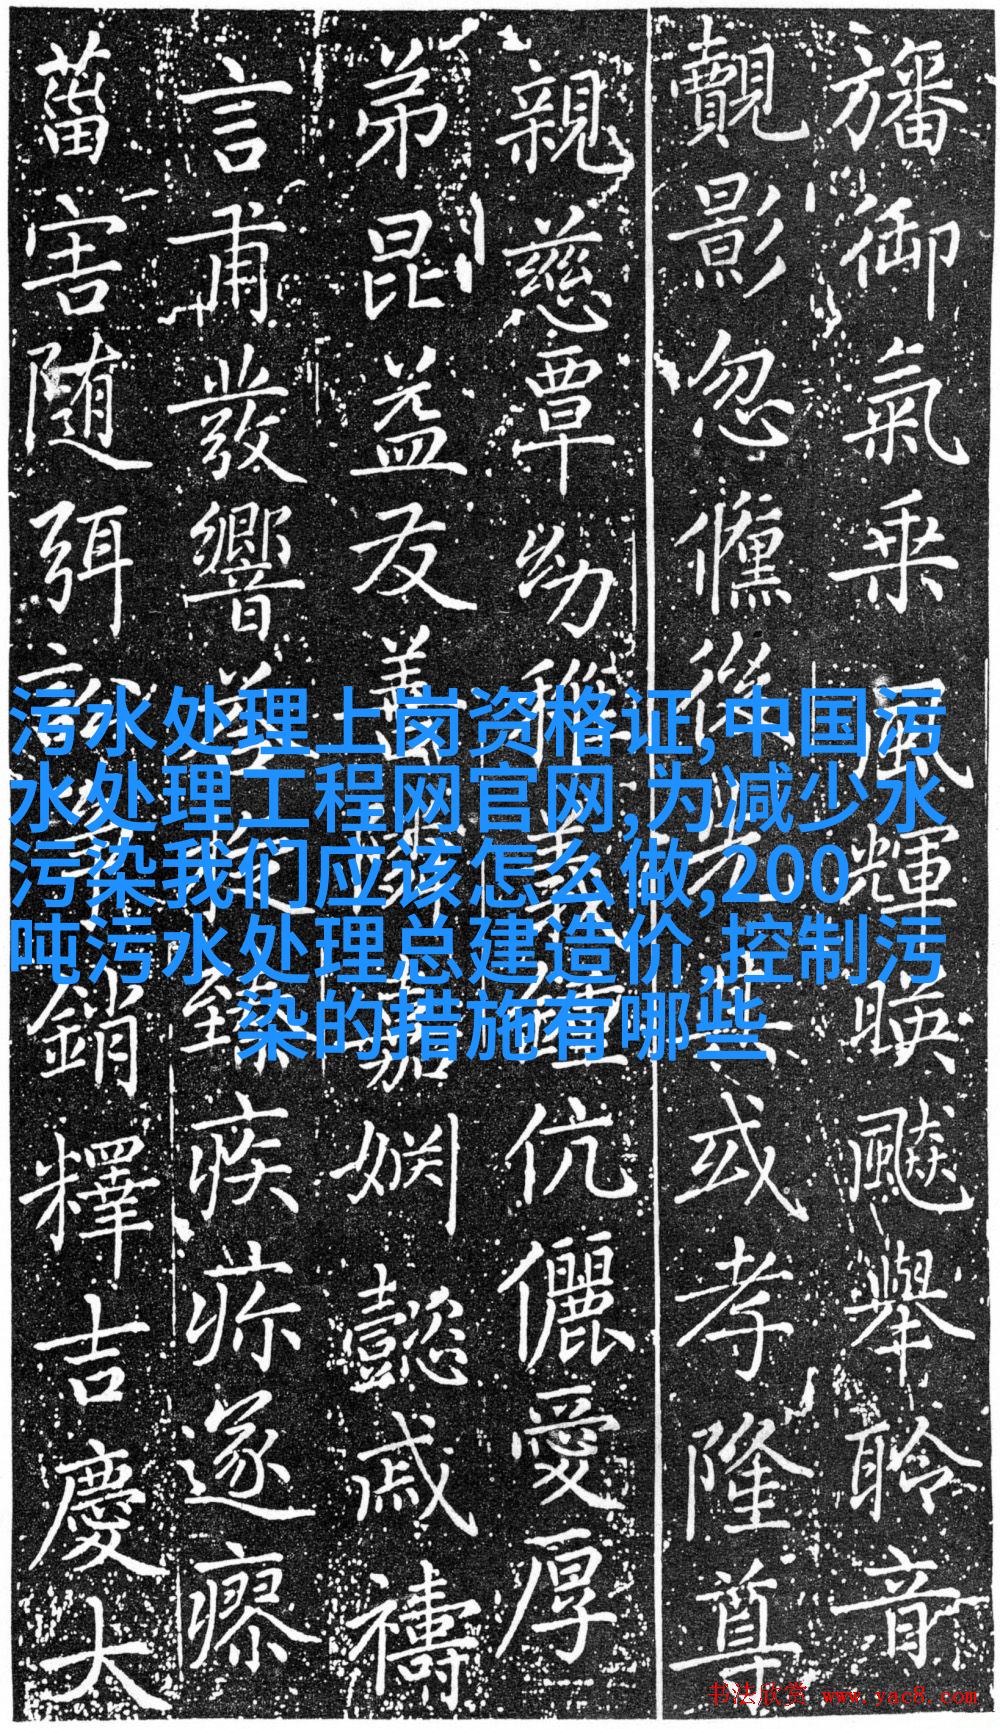 旛御氣乘風輝暎飈舉聆音
覿影忽愯後
或孝隆尊
親慈覃幼
伉儷愛厚
弟昆益友
嘉姻懿戚禱
言甫發響
臻疾疹遂瘳
菑害隨弭
銷釋吉慶大
污水处理上岗资格证,中国污
水处理工程网官网,为减少水
污染我们应该怎么做,200
吨污水处理总建造价,控制污
染的措施有哪些
书法欣赏 www.yac8.com